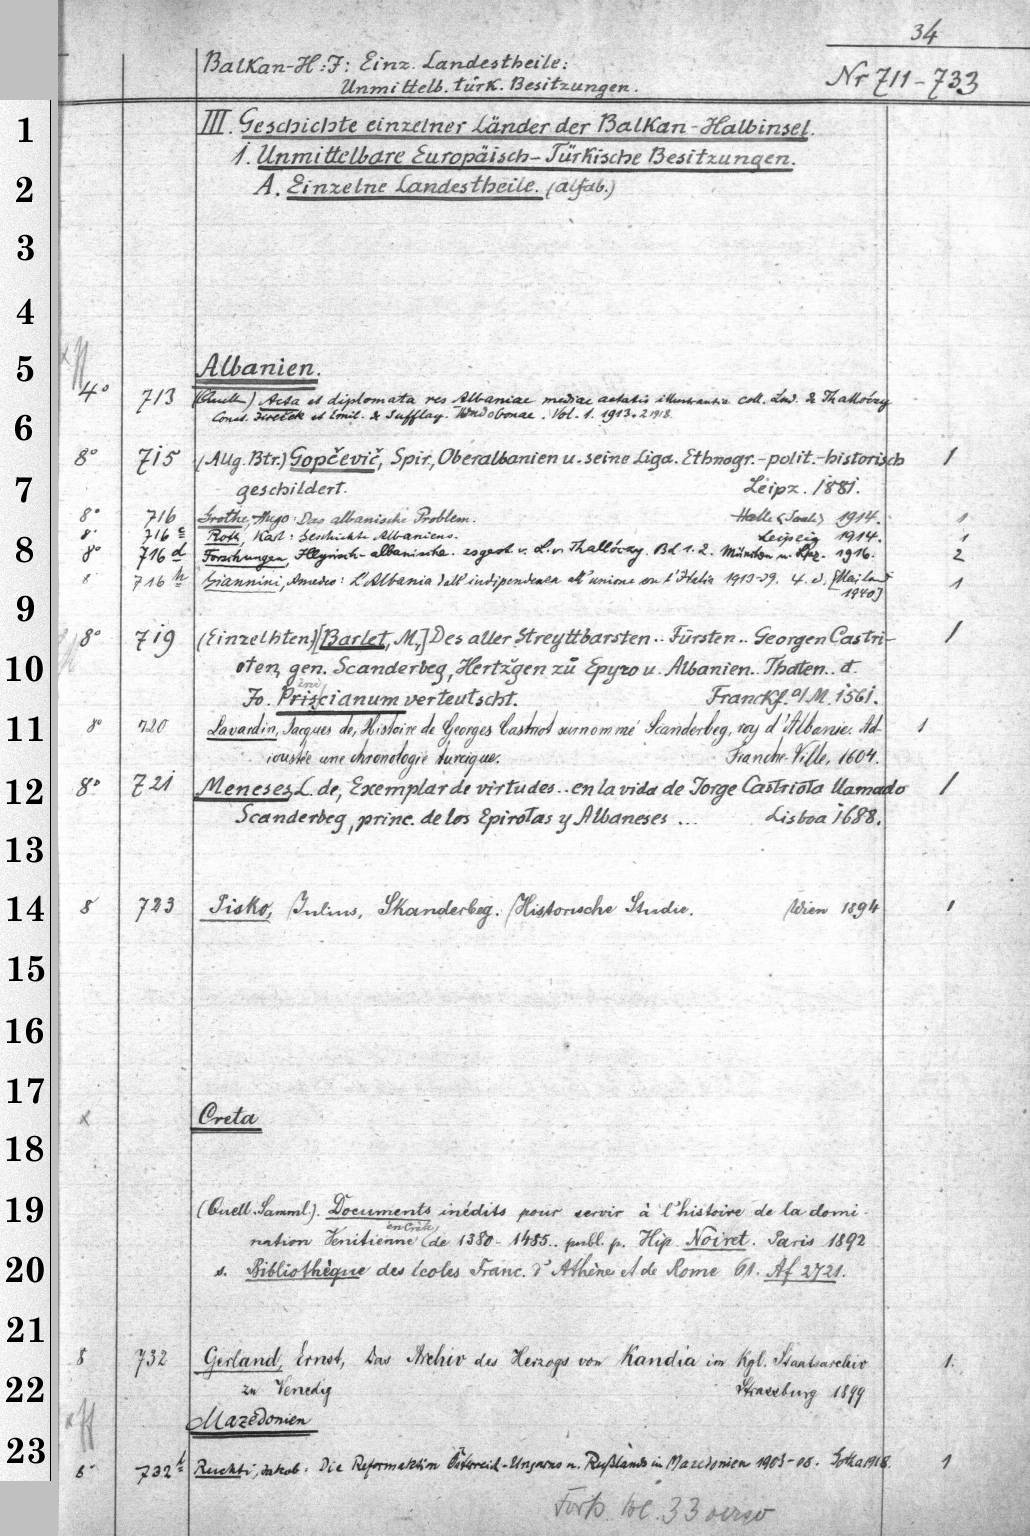 34
Balkan-H: J: Einz. Landestheile:
Unmittelb. türk. Besitzungen.
Nr 711-733
III. Geschichte einzelner Länder der Balkan-Halbinsel.
1. Unmittelbare Europäisch-Türkische Besitzungen.
A. Einzelne Landestheile. (alfab.)
1
2
3
4
5
6
7
8
9
10
11
12
13
14
15
16
17
18
19
20
21
22
23
Albanien.
4° 713 (Quell.) Acta et diplomata res Albaniae mediae aetatis illustrantia coll. Lud. de Thallóczy
Const. Jireček et Emil. de Sufflay. Vindobonae. Vol. 1. 1913. 2 1918.
8° 715 (Allg. Btr.) Gopčevič, Spir., Oberalbanien u. seine Liga. Ethnogr.-polit.-historisch 1
geschildert. Leipz. 1881.
8° 716 Grothe, Hugo: Das albanische Problem. Halle (Saale) 1914. 1
8° 716 c Roth, Karl: Geschichte Albaniens. Leipzig 1914. 1
8° 716 d Forschungen, Illyrisch-albanische. zsgest v. L. v. Thallóczy. Bd 1. 2. München u. Lpz. 1916. 2
8° 716 h Giannini, Amedeo: L'Albania dall'indipendenza all'unione con l'Italia 1913-39. 4. ed. [Mailand 1
1940]
8° 719 (Einzelhten) [Barlet, M.] Des aller Streyttbarsten.. Fürsten.. Georgen Castri- 1
oten, gen. Scanderbeg, Hertzŏgen zů Epyro u. Albanien.. Thaten.. d.
Jo. Priscianum verteutscht. Franckf. a/M. 1561.
8° 720 Lavardin, Jacques de, Histoire de Georges Castriot surnommé Scanderbeg, roy d'Albanie. Ad- 1
ioustée une chronologie turcique. Franche-Ville, 1604.
8° 721 Meneses, L. de, Exemplar de virtudes.. en la vida de Jorge Castriota llamado 1
Scanderbeg, princ. de los Epirotas y Albaneses ... Lisboa 1688.
8 723 Pisko, Julius, Skanderbeg. Historische Studie. Wien 1894 1
Creta
(Quell. Samml.). Documents inédits pour servir à l'histoire de la domi-
en Crète
nation Vénitienne (de 1380-1485.. publ. p. Hip. Noiret. Paris 1892
s. Bibliothèque des écoles Franc. d'Athène et de Rome 61. Af 2721.
8 732 Gerland, Ernst, Das Archiv des Herzogs von Kandia im Kgl. Staatsarchiv 1.
zu Venedig Strassburg 1899
Mazedonien
8° 732 h Ruchti, Jakob: Die Reformaktion Österreich-Ungarns u. Rußlands in Mazedonien 1903-08. Gotha 1918. 1
Forts. Bl. 33 verso